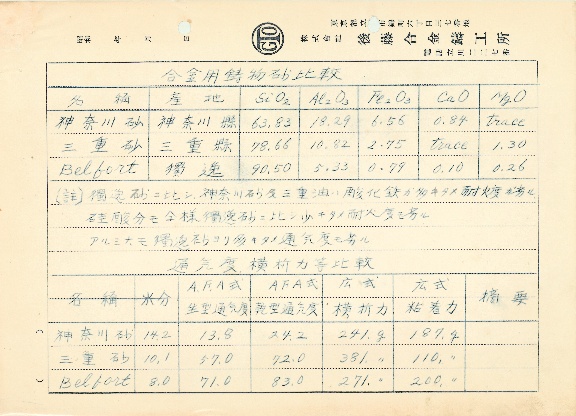 株式会社 後藤合金鋳工所
昭和 年 六 月 日
合金用鋳物砂比較
名稱 産地 SiO₂ Al₂O₃ Fe₂O₃ CaO MgO
神奈川砂 神奈川縣 63.83 18.29 6.56 0.84 trace
三重砂 三重縣 78.66 10.82 2.75 trace 1.30
Belfort 獨逸 90.50 5.33 0.99 0.10 0.26
(註) 獨逸砂ニ比シ、神奈川砂及三重油ハ酸化鉄ガ多キタメ耐火度ガ劣ル
硅酸分モ全様獨逸砂ニ比シ少キタメ耐火度モ劣ル
アルミナモ獨逸砂ヨリ多キタメ通気度モ劣ル
通気度 横折力等比較
名稱 水分 A.F.A式生型通気度 A.F.A式乾型通気度 広式横折力 広式粘着力 摘要
神奈川砂 14.2 13.8 24.2 241.g 187.g
三重砂 10.1 57.0 72.0 381.〃 110.〃
Belfort 8.0 71.0 83.0 271.〃 200.〃